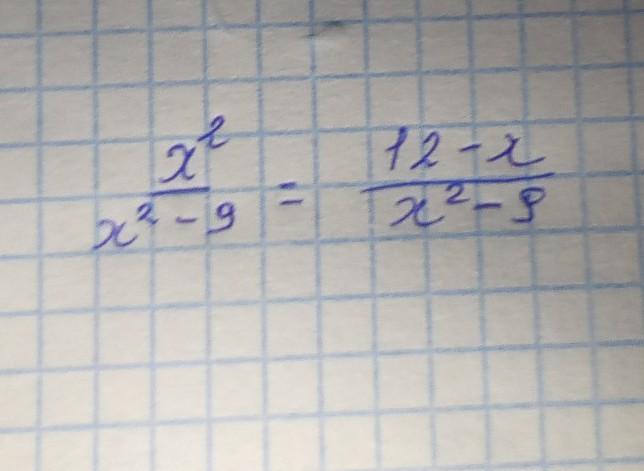 x²/(x² - 9) = (12 - x)/(x² - 9)